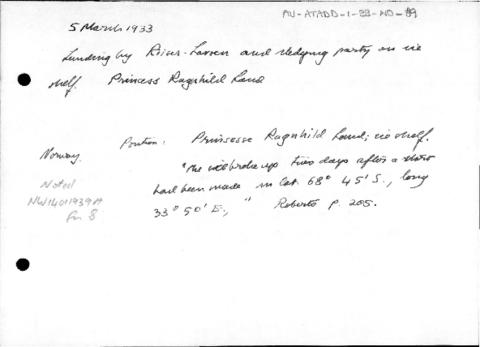 AU-ATADD-1-23-NO-89
5 March 1933
Landing by Riiser-Larsen and sledging party on ice
shelf. Princess Ragnhild Land
Norway.
Position: Prinsesse Ragnhild Land; ice shelf.
"The ice broke up two days after a start
had been made in Lat. 68° 45' S., long
33° 50' E.," Roberts p. 205.
Noted
NW14011939A
Fn 8